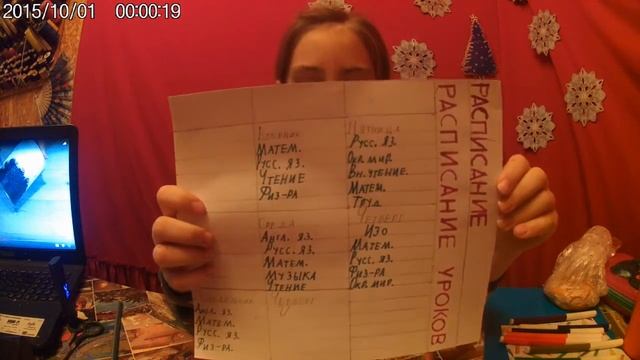 2015/10/01 00:00:19
РАСПИСАНИЕ
РАСПИСАНИЕ УРОКОВ
Вторник
Матем.
Русс. яз.
Чтение
Физ-ра
Пятница
Русс. яз.
Окр. мир.
Вн. чтение.
Матем.
Труд
Среда
Англ. яз.
Русс. яз.
Матем.
Музыка
Чтение
Четверг
ИЗО
Матем.
Русс. яз.
Физ-ра
Окр. мир.
Понедельник
Англ. яз.
Матем.
Русс. яз.
Физ-ра.
Четверг